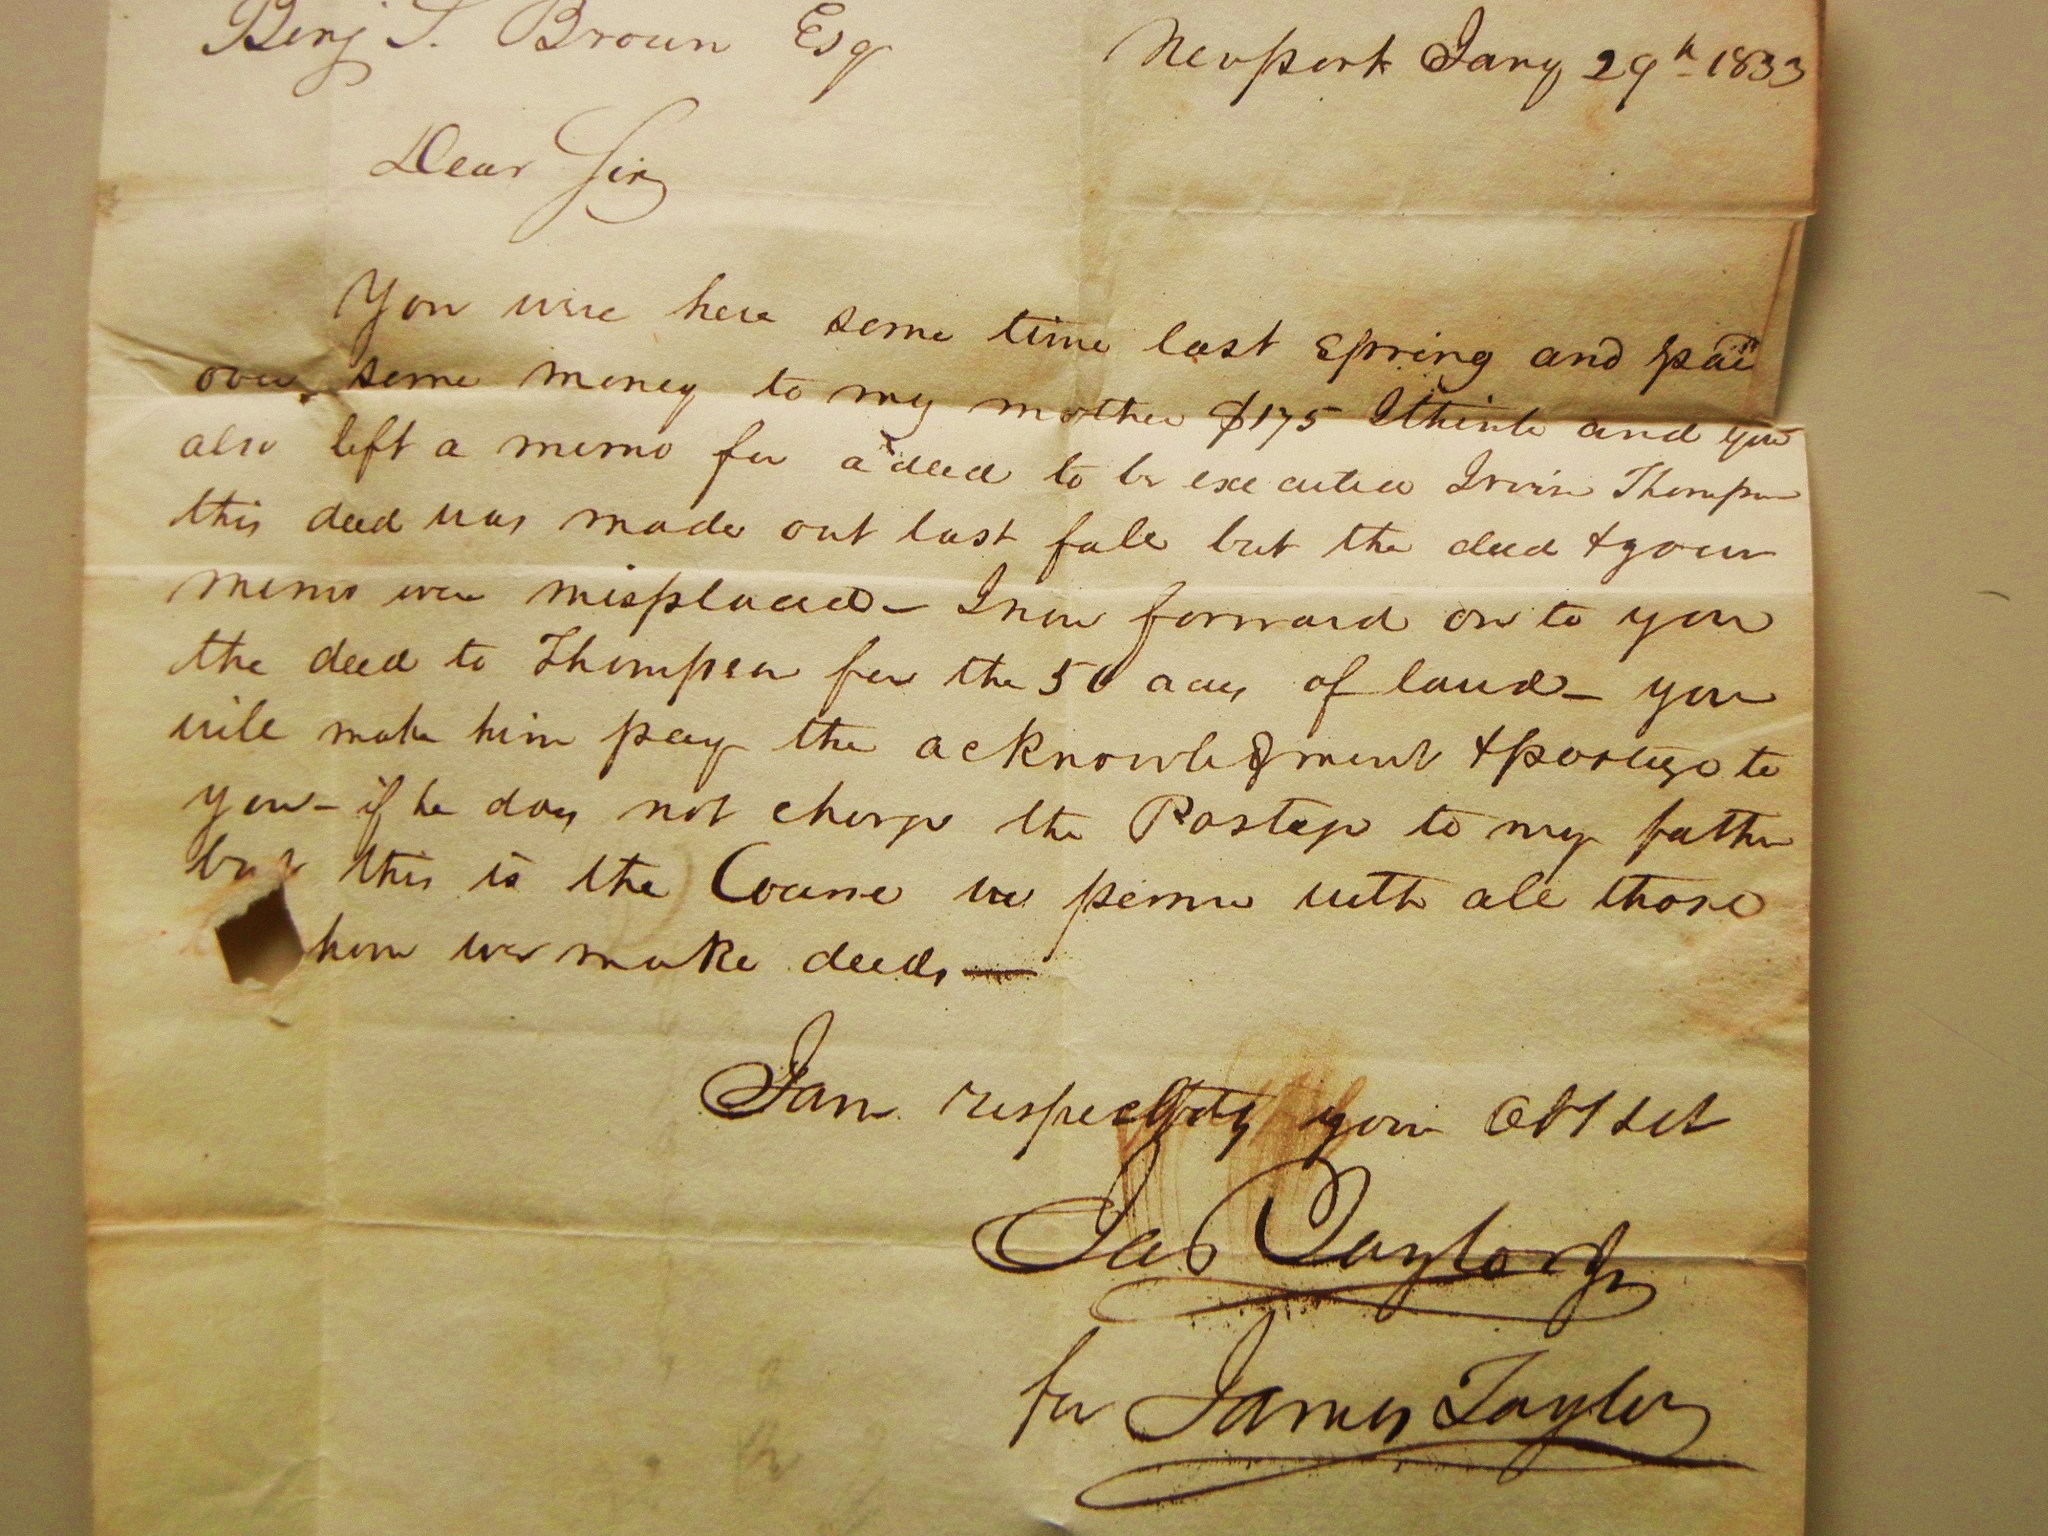 Benj S. Brown Esq
Newport Jany 29th 1833
Dear Sir
You were here some time last Spring and paid
over some money to my mother $175 I think and you
also left a memo for a deed to be executed Irvin Thompson
this deed was made out last fall but the deed & your
memo were misplaced - I now forward on to you
the deed to Thompson for the 50 acres of land - you
will make him pay the acknowledgment & postage to
you - if he does not charge the Postage to my father
but this is the Course we persue with all those
whom we make deeds -
I am respectfully your Obt Sert
Jas Taylor Jr
for James Taylor